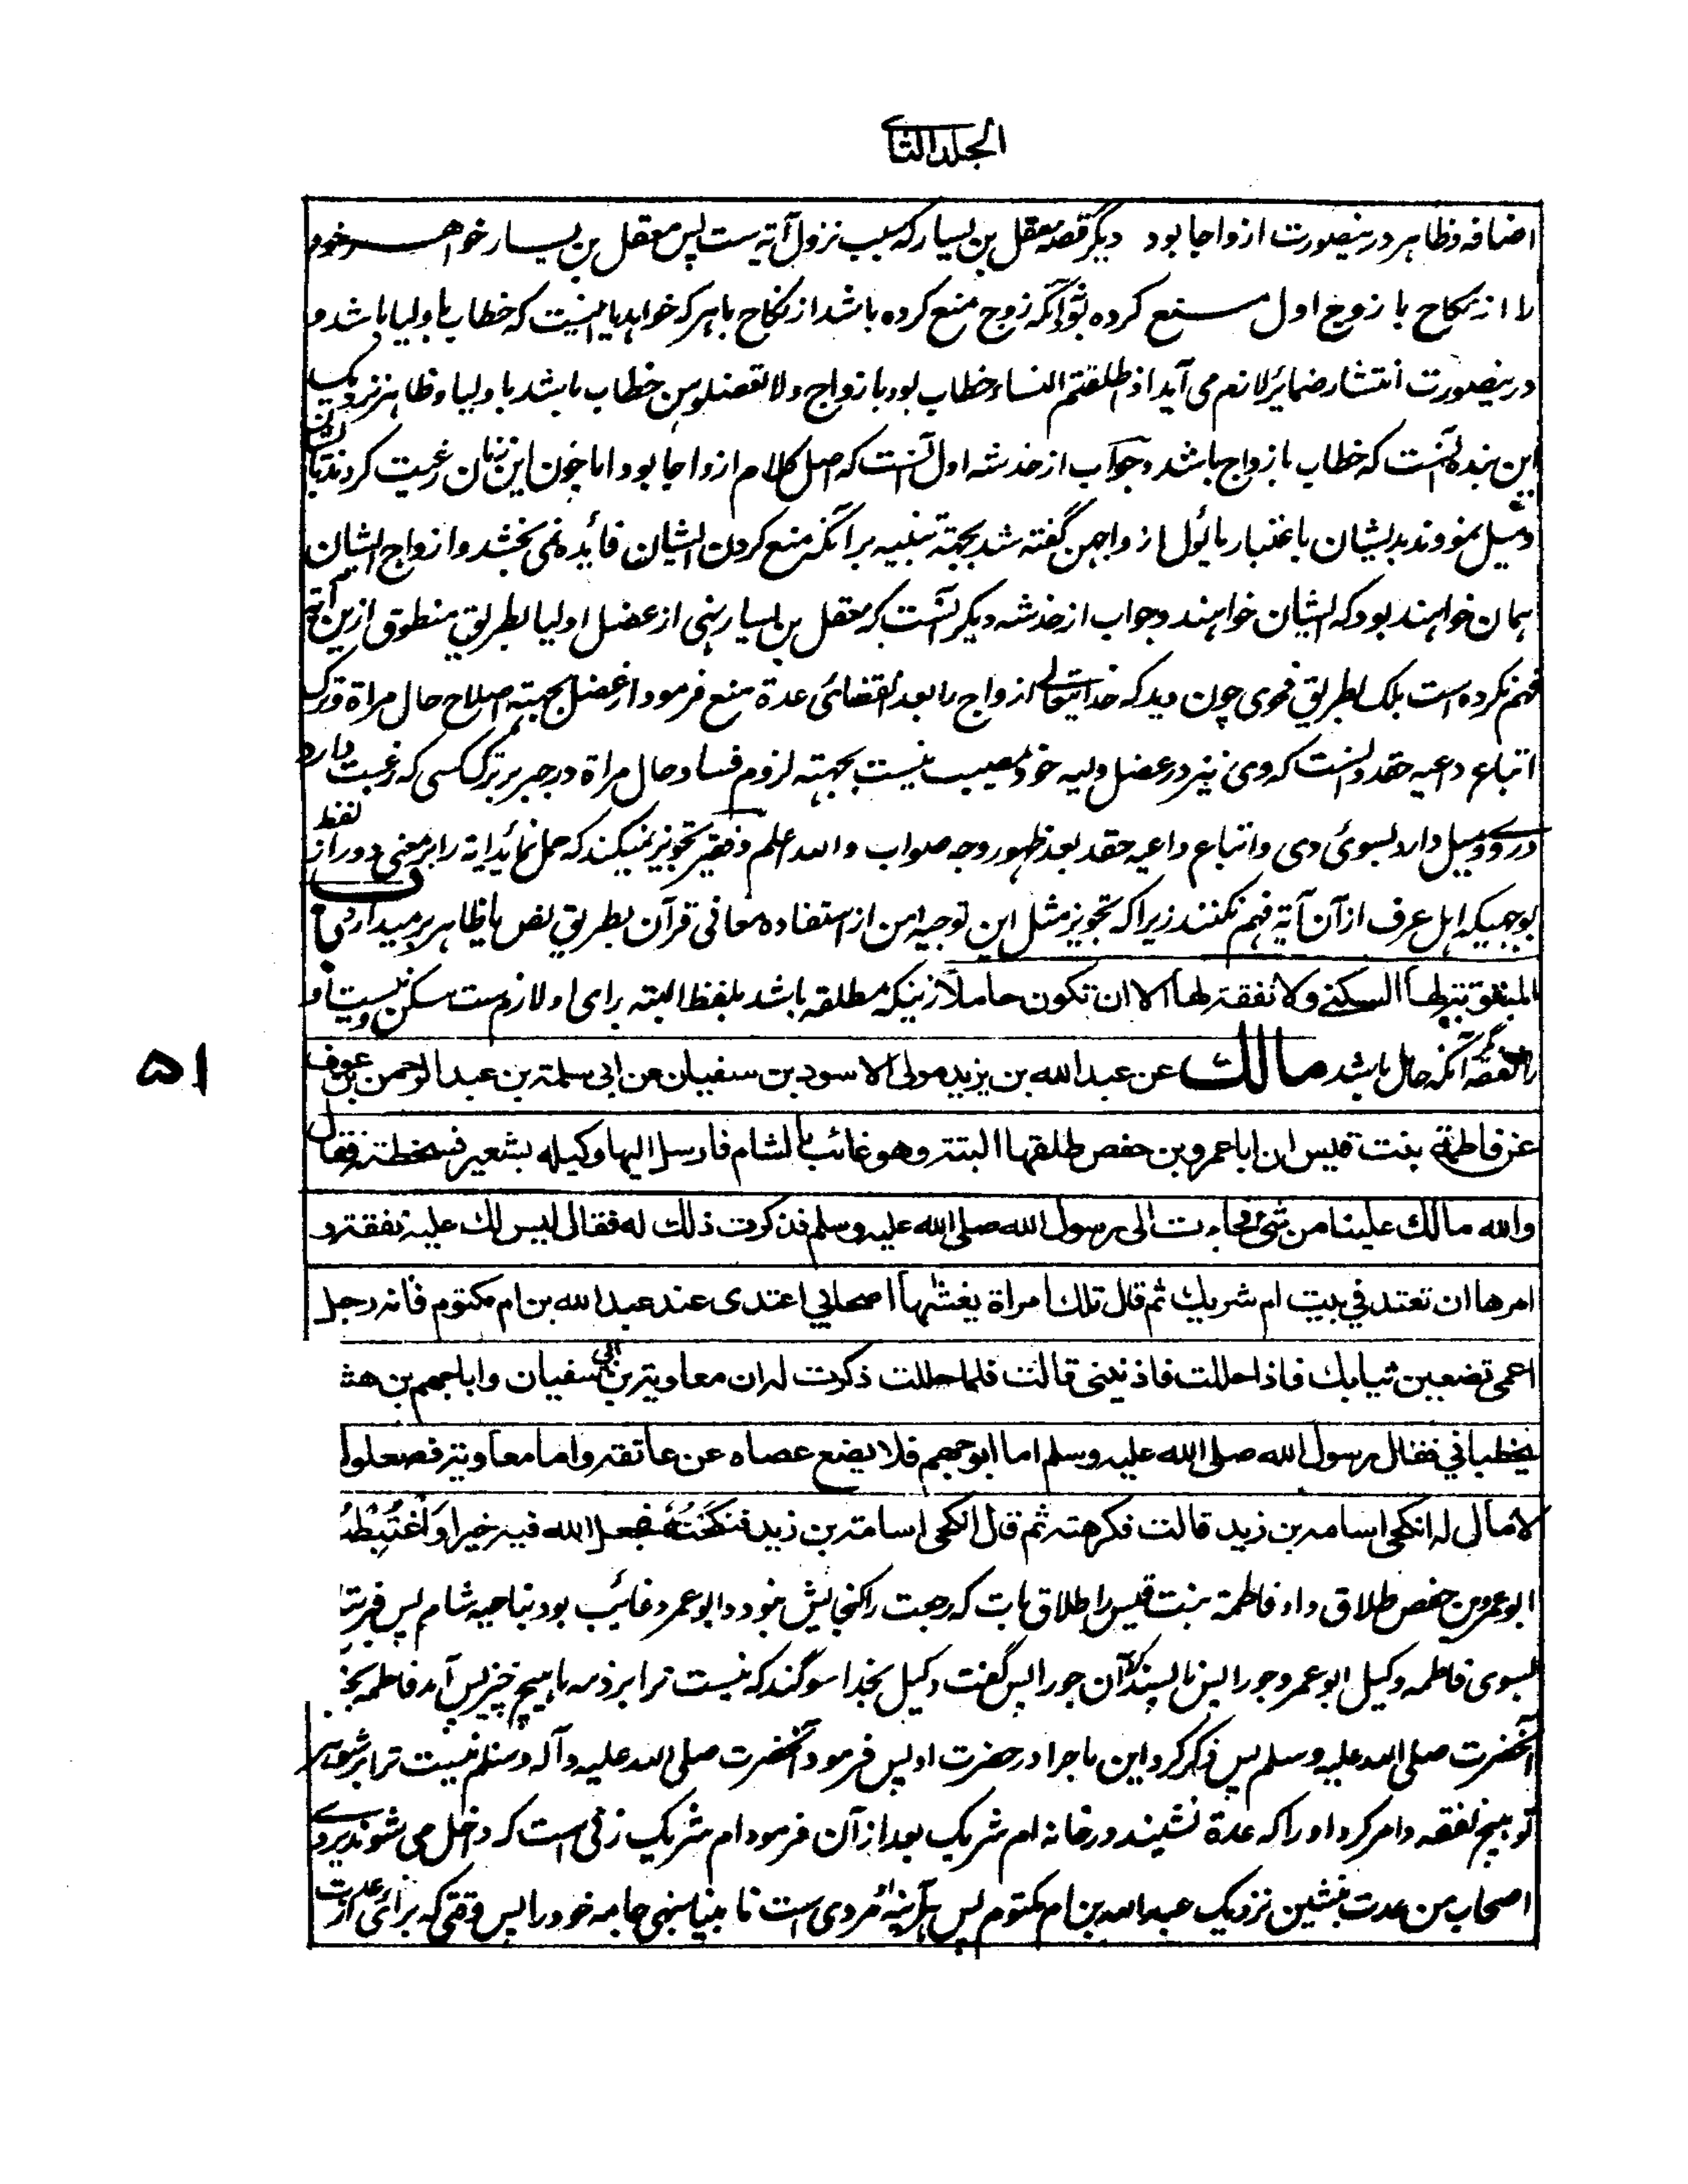 الجلد الثانے
اضافه وظاهر درینصورت ازواجا بود دیگر قصه معقل بن یسار که سبب نزول آیة ست پس معقل بن یسار خواهر خود
را از نکاح با زوج اول منع کرده نه آنکه زوج منع کرده باشد از نکاح با هر که خواهد یا اینست که خطاب با ولیا باشد و
درینصورت انتشار ضمائر لازم می آید اذ طلقتم النساء خطاب بود با زواج و لا تعضلوهن خطاب باشد با ولیا و ظاهر نزدیک
این بنده آنست که خطاب با زواج باشد و جواب از خدشه اول آنست که اصل کلام ازواجا بود اما چون این زنان رغبت کردند بایشان
و میل نمودند بدیشان باعتبار ما یؤل ازواجهن گفته شد بجهته تنبیه بر آنکه منع کردن ایشان فائده نمی بخشد و ازواج ایشان
همان خواهند بود که ایشان خواهند و جواب از خدشه دیگر آنست که معقل بن یسار نهی از عضل اولیا بطریق منطوق ازین آیة
فهم نکرده است بلکه بطریق فحوی چون دید که خدایتعالی ازواج را بعد انقضائی عدة منع فرمود از عضل بجهته صلاح حال مراة و ترک
اتباع داعیه حقد دانست که وی نیز در عضل ولیه خود مصیب نیست بجهته لزوم فساد حال مراة در جبر بر ترک کسی که رغبت دارد
در وے و میل دارد بسوئ وی و اتباع داعیه حقد بعد ظهور وجه صواب والله اعلم و فقیر تجویز نمیکند که حمل نمائید آیة را بر معنی دور از لفظ
بوجهیکه اهل عرف از آن آیة فهم نکنند زیرا که تجویز مثل این توجیه امن از استفاده معانی قرآن بطریق نص یا ظاهر بر میدارد باب
المبتوتة لها السکنے ولا نفقة لها الا ان تکون حاملا زنیکه مطلقه باشد بلفظ البته برای او لازم ست سکنی و نیست او
را نفقه مگر آنکه حامل باشد مالك عن عبدالله بن یزید مولی الاسود بن سفیان عن ابی سلمة بن عبدالرحمن بن عوف
عن فاطمة بنت قیس ان ابا عمرو بن حفص طلقها البتة وهو غائب بالشام فارسل الیها وکیله بشعیر فسخطته فقال
والله مالك علینا من شیء فجاءت الی رسول الله صلی الله علیه وسلم فذکرت ذلك له فقال لیس لك علیه نفقة و
امرها ان تعتد فی بیت ام شریك ثم قال تلك امراة یغشاها اصحابی اعتدی عند عبدالله بن ام مکتوم فانه رجل
اعمی تضعین ثیابك فاذا حللت فاذنینی قالت فلما حللت ذکرت له ان معاویة بن ابی سفیان و اباجهم بن هشا
خطبانی فقال رسول الله صلی الله علیه وسلم اما ابوجهم فلا یضع عصاه عن عاتقه واما معاویة فصعلوك
لا مال له انکحی اسامه بن زید قالت فکرهته ثم قال انکحی اسامة بن زید فنکحته فجعل الله فیه خیرا واغتبطت
ابو عمرو بن حفص طلاق داد فاطمة بنت قیس را طلاق بات که رجعت را گنجایش نبود و ابو عمرو غائب بود بناحیه شام پس فرستا
بسوی فاطمه وکیل ابو عمرو جو را پس ناپسند کرد آن جو را پس گفت وکیل بخدا سوگند که نیست ترا بر ذمه ما هیچ چیز پس آمد فاطمه بخد
آنحضرت صلی الله علیه وسلم پس ذکر کرد این ماجرا در حضرت او پس فرمود آنحضرت صلی الله علیه وآله وسلم نیست ترا بر شوهر
تو هیچ نفقه و امر کرد او را که عدة نشیند در خانه ام شریک بعد از آن فرمود ام شریک زنی است که داخل می شوند بروے
اصحاب من عدت بنشین نزدیک عبدالله بن ام مکتوم پس هر آئینه او مردی است نا بینا بنهی جامه خود را پس وقتی که برائی از عدت
۵۱